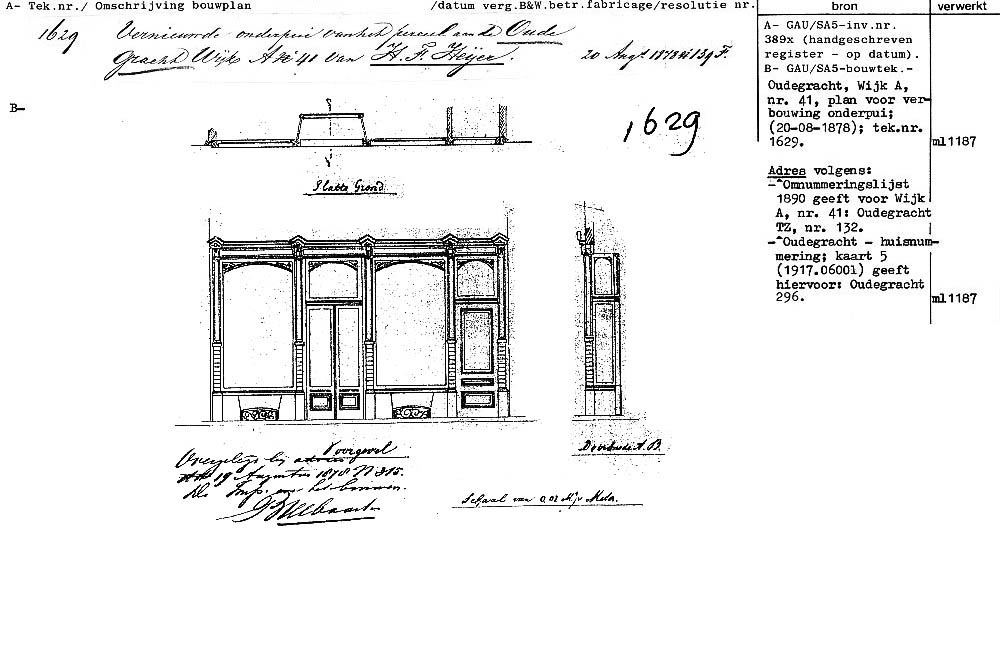 A- Tek.nr./ Omschrijving bouwplan /datum verg.B&W.betr.fabricage/resolutie nr. bron verwerkt
1629 Vernieuwde onderpui van het perceel aan de Oude
Gracht Wijk A No 41 van H. F. Heijer. 20 Augt 1878 139 F.
A- GAU/SA5-inv.nr.
389x (handgeschreven
register - op datum).
B- GAU/SA5-bouwtek.-
Oudegracht, Wijk A,
nr. 41, plan voor ver-
bouwing onderpui;
(20-08-1878); tek.nr.
1629. ml1187
Adres volgens:
-"Omnummeringslijst
1890 geeft voor Wijk
A, nr. 41: Oudegracht
TZ, nr. 132.
-"Oudegracht - huisnum-
mering; kaart 5
(1917.06001) geeft
hiervoor: Oudegracht
296. ml1187
B-
1629
Platte Grond.
Voorgevel
Overgelegd bij
19 Augustus 1878 N 815.
Doorsnede A.B.
Schaal van 0,02 M. p. Meter.